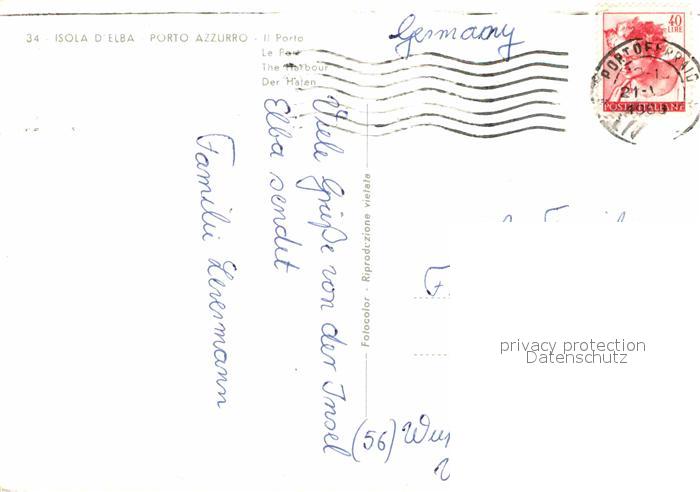 34 - ISOLA D'ELBA - PORTO AZZURRO - Il Porto
Le Port
The Harbour
Der Hafen
Germany
40
LIRE
PORTOFERRAIO
21-1
POSTE ITALIANE
Viele Grüße von der Insel
Elba sendet
Familie
Fotocolor - Riproduzione vietata
F.
privacy protection
Datenschutz
(56) Wup